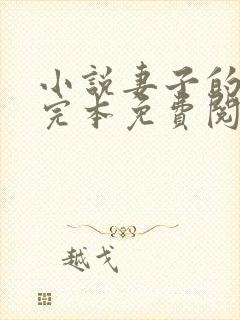 小說妻子的
完本免費閱
越戈